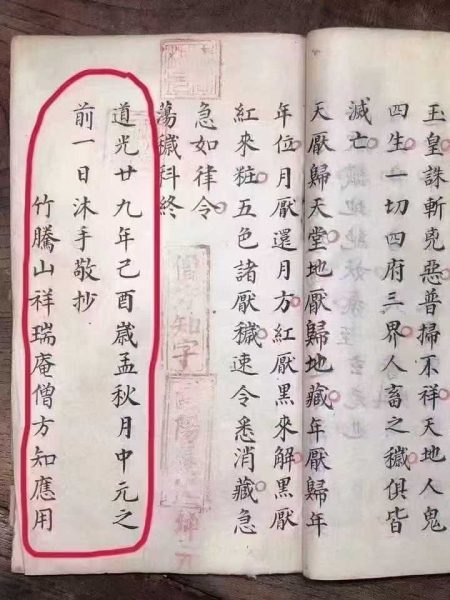 玉皇誅斬兇惡普掃不祥天地人鬼
四生一切四府三界人畜之穢俱皆
滅亡
天厭歸天堂地厭歸地藏年厭歸年
年位月厭還月方紅厭黑來解黑厭
紅來粧五色諸厭穢速令悉消藏急
急如律令
蕩穢科終
道光廿九年己酉歲孟秋月中元之
前一日沐手敬抄
竹騰山祥瑞庵僧方知應用
僧方知字